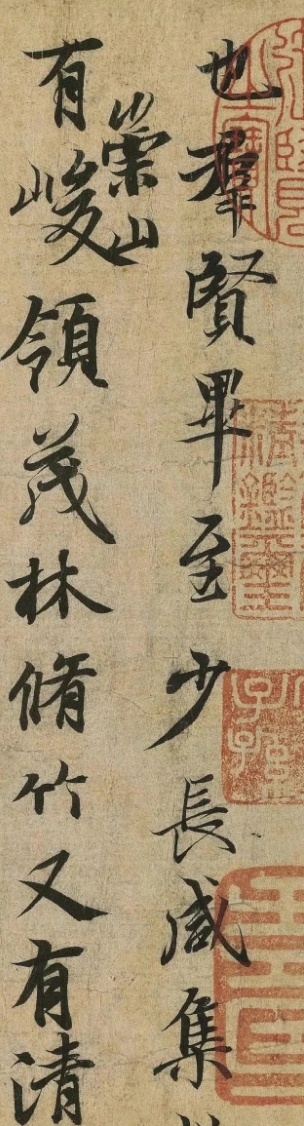 也羣賢畢至少長咸集
有崇山峻領茂林脩竹又有清